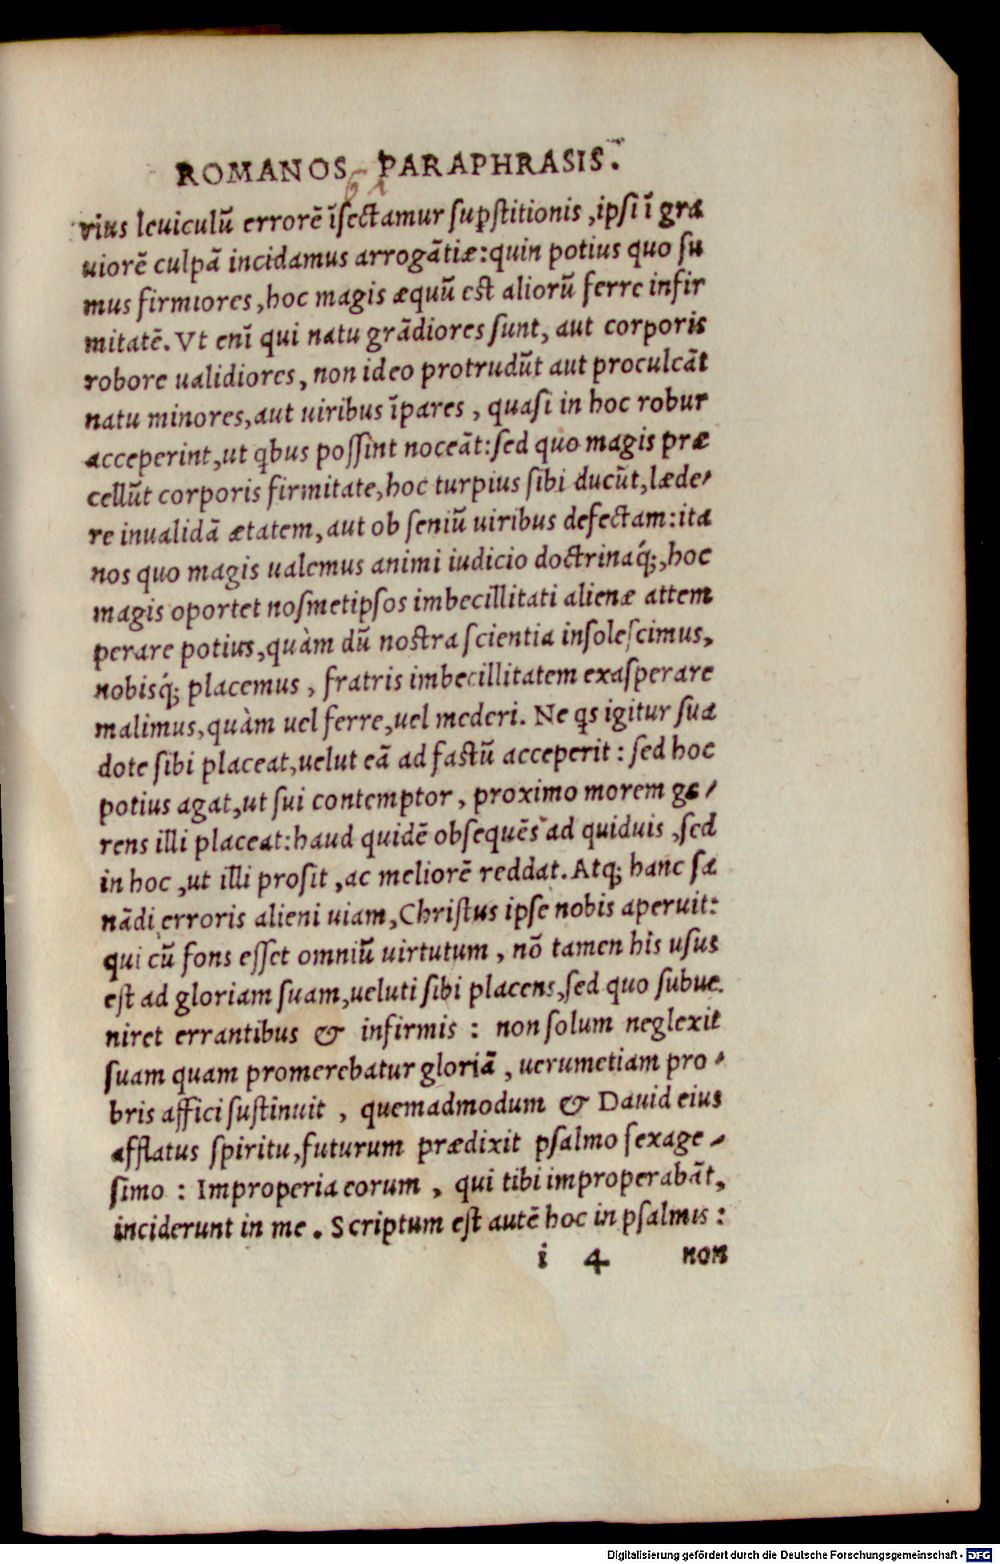 ROMANOS PARAPHRASIS.
rius leuiculū errorē īſectamur ſupſtitionis, ipſi ī gra
uiorē culpā incidamus arrogātiæ: quin potius quo ſu
mus firmiores, hoc magis æquū est aliorū ferre infir
mitatē. Vt enī qui natu grādiores ſunt, aut corporis
robore ualidiores, non ideo protrudūt aut proculcāt
natu minores, aut uiribus īpares, quaſi in hoc robur
acceperint, ut qbus poſſint noceāt: ſed quo magis præ
cellūt corporis firmitate, hoc turpius ſibi ducūt, læde⸗
re inualidā ætatem, aut ob ſeniū uiribus defectam: ita
nos quo magis ualemus animi iudicio doctrinaq́;, hoc
magis oportet noſmetipſos imbecillitati alienæ attem
perare potius, quàm dū noſtra ſcientia inſoleſcimus,
nobisq́; placemus, fratris imbecillitatem exaſperare
malimus, quàm uel ferre, uel mederi. Ne qs igitur ſua
dote ſibi placeat, uelut eā ad faſtū acceperit: ſed hoc
potius agat, ut ſui contemptor, proximo morem ge⸗
rens illi placeat: haud quidē obſequēs ad quiduis, ſed
in hoc, ut illi proſit, ac meliorē reddat. Atq; hanc ſa
nādi erroris alieni uiam, Chriſtus ipſe nobis aperuit:
qui cū fons eſſet omniū uirtutum, nō tamen his uſus
eſt ad gloriam ſuam, ueluti ſibi placens, ſed quo ſubue
niret errantibus & infirmis: non ſolum neglexit
ſuam quam promerebatur gloriā, uerumetiam pro⸗
bris affici ſuſtinuit, quemadmodum & Dauid eius
afflatus ſpiritu, futurum prædixit pſalmo ſexage⸗
ſimo: Improperia eorum, qui tibi improperabāt,
inciderunt in me. Scriptum eſt autē hoc in pſalmis:
i 4 non
Digitalisierung gefördert durch die Deutsche Forschungsgemeinschaft - DFG